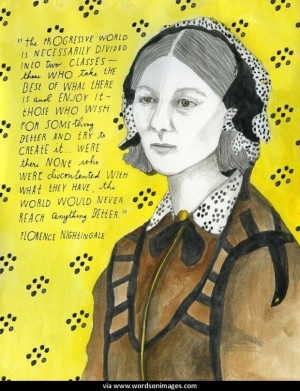 "the PROGRESSIVE WORLD
IS NECESSARILY DIVIDED
INTO two CLASSES —
those WHO take the
BEST OF WHAT THERE
IS and ENJOY IT —
THOSE WHO WISH
FOR SOMEthing
BETTER AND tRY to
CREATE it... WERE
there NONE who
WERE discontented WITH
WHAT THEY HAVE, the
WORLD WOULD NEVER
REACH anything BETTER."
FLORENCE NIGHTINGALE
via www.wordsonimages.com